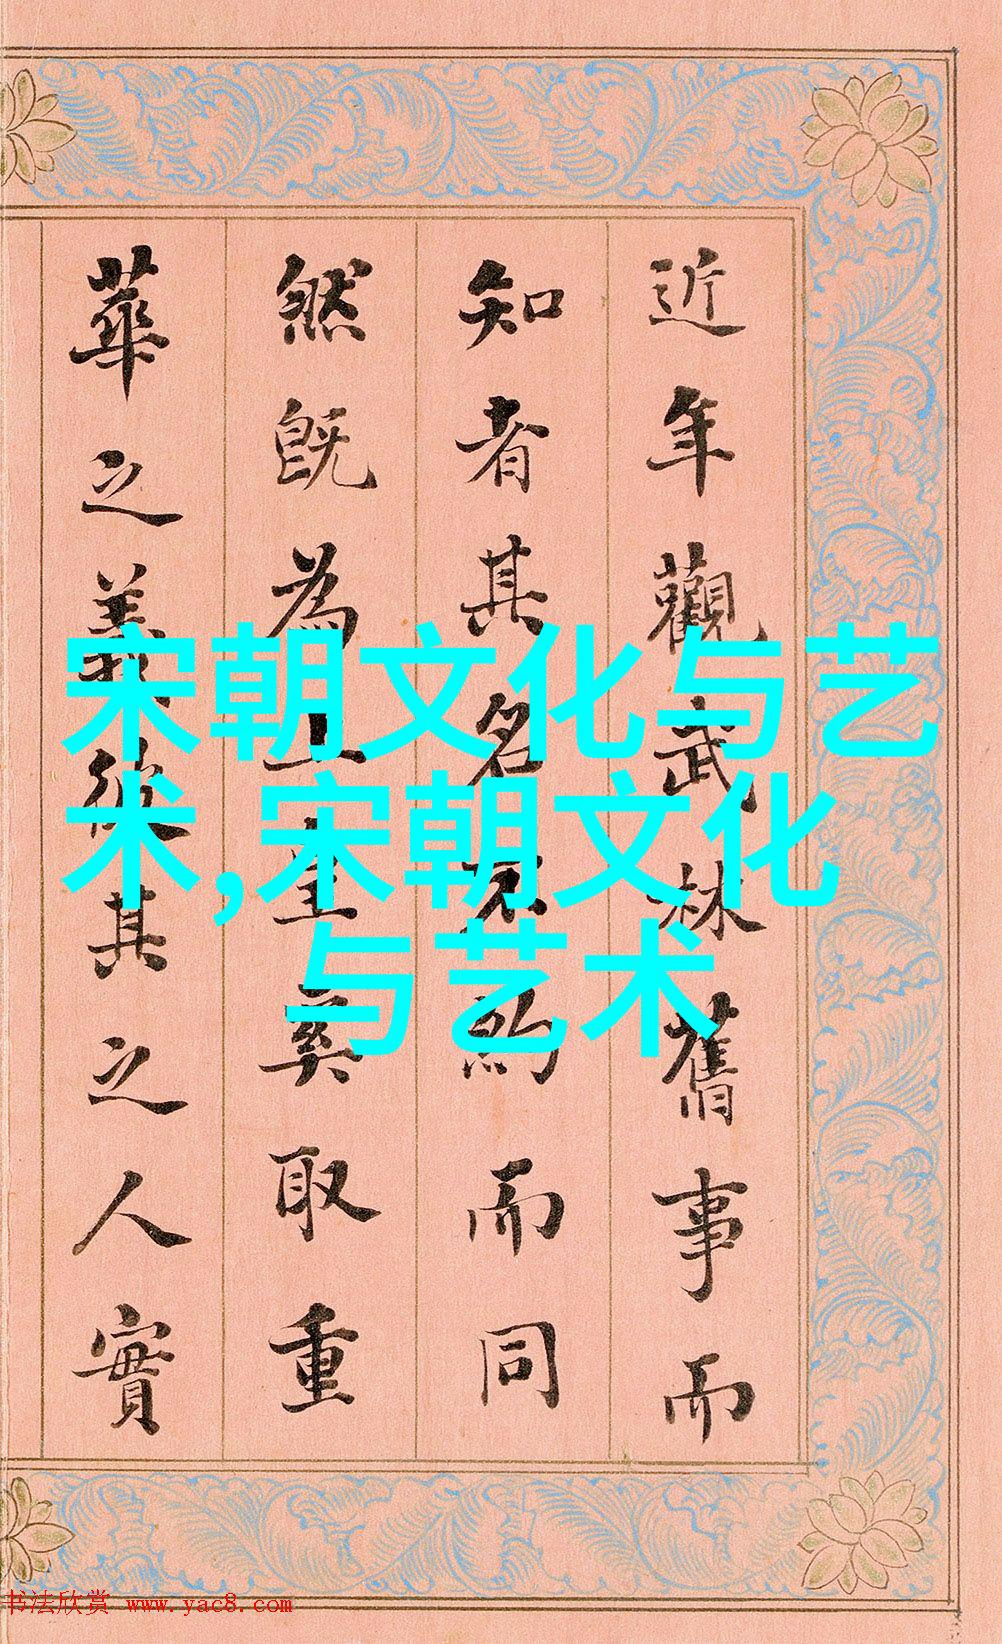 近年觀武林舊事而
知者其名不約而同
然既為主矣取重
華之義彼其之人實
宋朝文化与艺
术,宋朝文化
与艺术
书法欣赏 www.yac8.com